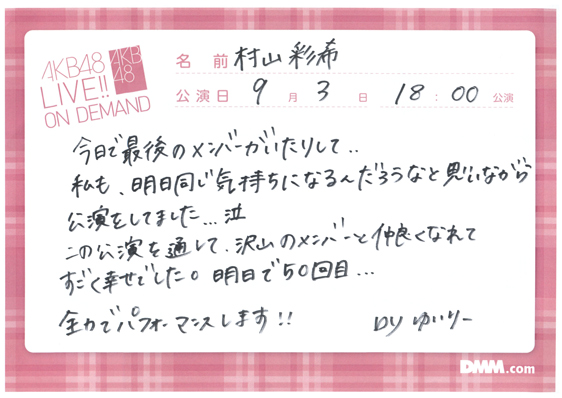 AKB48
LIVE!!
ON DEMAND
AKB
48
名前 村山彩希
公演日 9月3日 18:00公演
今日で最後のメンバーがいたりして..
私も、明日同じ気持ちになるんだろうなと思いながら
公演をしました...泣
この公演を通して、沢山のメンバーと仲良くなれて
すごく幸せでした。明日で50回目...
全力でパフォーマンスします!!
by ゆいりー
DMM.com